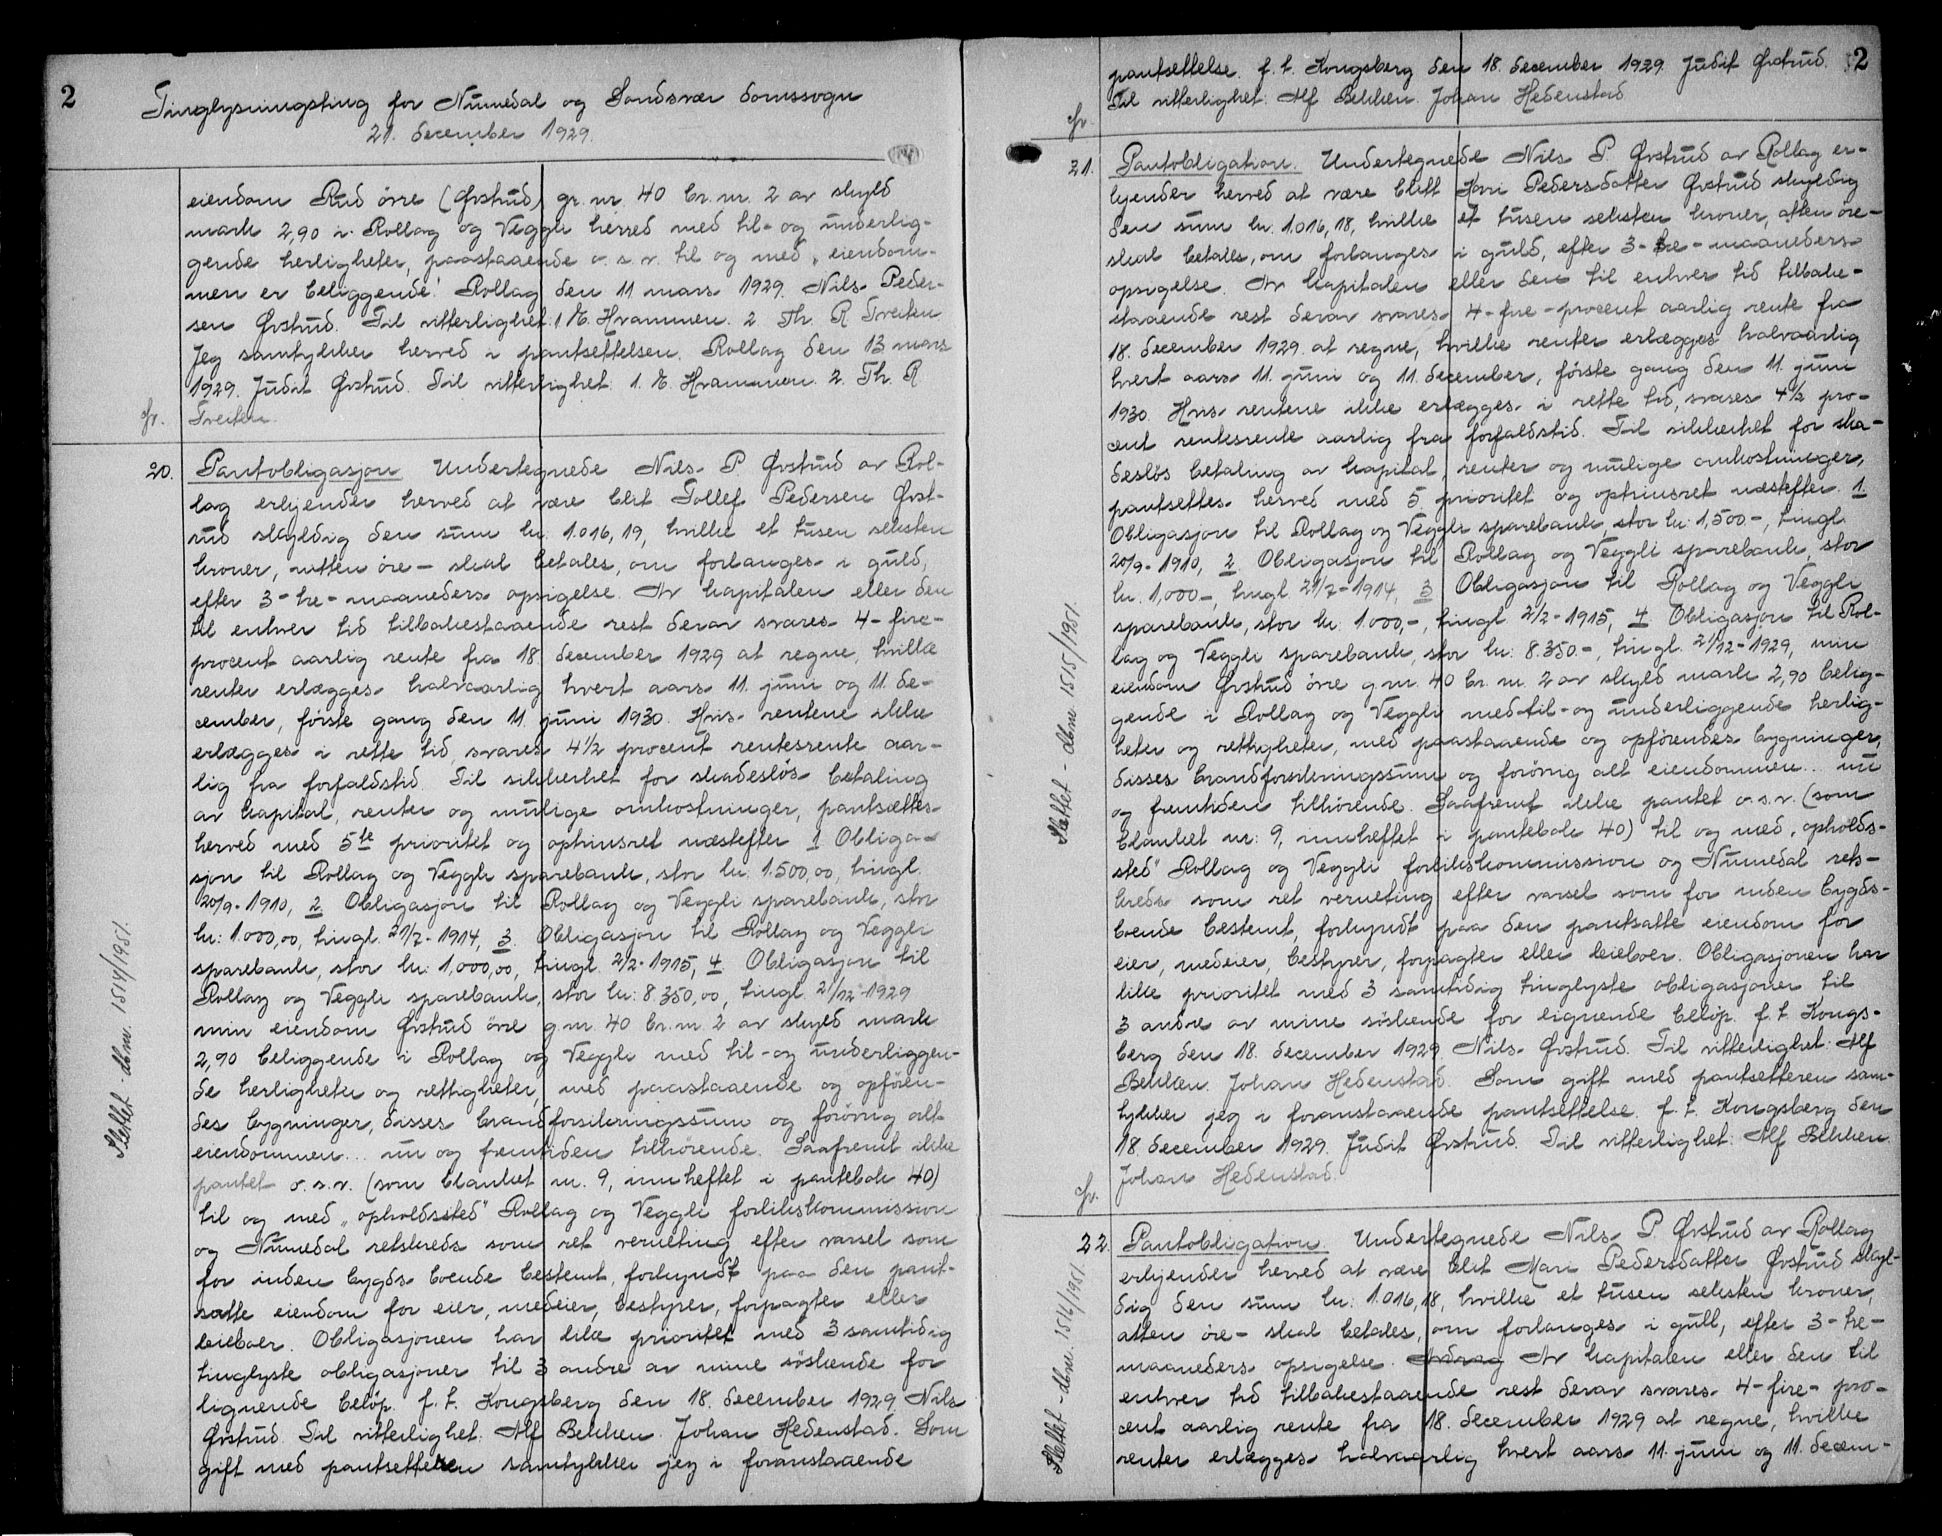 2
Tinglysningsting for Numedal og Sandsvær domssogn
21. december 1929.
eiendom Rud öre (Övstrud) gr. nr. 40 br. nr. 2 av skyld
mark 2,90 i Rollag og Veggli herred med til- og underlig-
gende herligheter, paastaaende o. s. v. til og med „eiendom-
men er beliggende". Rollag den 11 mars 1929. Nils Peder-
sen Övstrud. Til vitterlighet: 1 E. Hvammen. 2 Th. R Tveiten
Jeg samtykker herved i pantsettelsen. Rollag den 13 mars
1929. Judit Övstrud. Til vitterlighet: 1. E. Hvammen. 2. Th. R
Tveiten.
20. Pantobligasjon Undertegnede Nils P Övstrud av Rol-
lag erkjender herved at være blit Tollef Pedersen Övst-
rud skyldig den sum kr. 1.016,19, hvilke et tusen seksten
kroner, nitten öre – skal betales, om forlanges i guld,
efter 3-tre-maaneders opsigelse. Av kapitalen eller den
til enhver tid tilbakestaaende rest derav svares 4-fire-
procent aarlig rente fra 18 december 1929 at regne, hvilke
renter erlægges halvaarlig hvert aars 11. juni og 11. de-
cember, förste gang den 11. juni 1930. Hvis rentene ikke
erlægges i rette tid, svares 4½ procent rentesrente aar-
lig fra forfaldstid. Til sikkerhet for skadeslös betaling
av kapital, renter og mulige omkostninger, pantsættes
herved med 5te prioritet og optrinsret næstefter 1 Obliga-
sjon til Rollag og Veggli sparebank, stor kr. 1.500,00, tingl.
20/9-1910, 2 Obligasjon til Rollag og Veggli sparebank, stor
kr: 1.000,00, tingl. 21/7-1914, 3. Obligasjon til Rollag og Veggli
sparebank, stor kr: 1,000,00, tingl. 2/2-1915, 4 Obligasjon til
Rollag og Veggli sparebank, stor kr: 8.350,00, tingl. 21/12-1929
min eiendom Övstrud övre g.nr. 40 br.nr. 2 av skyld mark
2,90 beliggende i Rollag og Veggli med til- og underliggen-
de herligheter og rettigheter, med paastaaende og opfören-
des bygninger, disses brandforsikringssum og forövrig alt
eiendommen... nu og fremtiden tilhörende. Saafremt ikke
pantet o. s. v. (som blanket nr. 9, innheftet i pantebok 40)
til og med „opholdssted" Rollag og Veggli forlikskommission
og Numedal retskreds som ret verneting efter varsel som
for inden bygds boende bestemt, forkyndt paa den pant-
satte eiendom for eier, medeier, bestyrer, forpagter eller
leieboer. Obligasjonen har like prioritet med 3 samtidig
tinglyste obligasjoner til 3 andre av mine söskende for
lignende belöp. f. t. Kongsberg den 18. december 1929 Nils
Övstrud. Til vitterlighet: Alf Bekken. Johan Hedenstad. Som
gift med pantsetteren samtykker jeg i foranstaaende
Slettet - dbnr. 1514/1951.
2
pantsettelse. f. t. Kongsberg den 18. december 1929. Judit Övstrud.
Til vitterlighet: Alf Bekken. Johan Hedenstad
21. Pantobligation. Undertegnede Nils P. Övstrud av Rollag er-
kjender herved at være blitt Kari Pedersdatter Övstrud skyldig
den sum kr. 1.016,18, hvilke et tusen seksten kroner, atten öre –
skal betales, om forlanges i guld, efter 3-tre-maaneders
opsigelse. Av kapitalen eller den til enhver tid tilbake-
staaende rest derav svares 4-fire-procent aarlig rente fra
18. december 1929. at regne, hvilke renter erlægges halvaarlig
hvert aars 11. juni og 11. december, förste gang den 11. juni
1930. Hvis rentene ikke erlægges i rette tid, svares 4½ pro-
cent rentesrente aarlig fra forfaldstid. Til sikkerhet for ska-
deslös betaling av kapital, renter og mulige omkostninger,
pantsettes herved med 5 prioritet og optrinsret næstefter. 1.
Obligasjon til Rollag og Veggli sparebank, stor kr: 1,500.-, tingl.
20/9-1910, 2 Obligasjon til Rollag og Veggli sparebank, stor
kr. 1,000-, tingl. 21/7-1914, 3 Obligasjon til Rollag og Veggli
sparebank, stor kr: 1.000,-, tingl 2/2-1915, 4 Obligasjon til Rol-
lag og Veggli sparebank, stor kr: 8.350.-, tingl. 21/12-1929, min
eiendom Övstrud övre g.nr. 40 br. nr. 2 av skyld mark 2,90 belig-
gende i Rollag og Veggli med til- og underliggende herlig-
heter og rettigheter, med paastaaende og opförendes bygninger,
disses brandforsikringssum og forövrig alt eiendommen... nu
og fremtiden tilhörende. Saafremt ikke pantet o. s. v. (som
blanket nr: 9, innheftet i pantebok 40) til og med „opholds-
sted" Rollag og Veggli forlikskommission og Numedal rets-
kreds som ret verneting efter varsel som for inden bygds-
boende bestemt, forkyndt paa den pantsatte eiendom for
eier, medeier, bestyrer, forpagter eller leieboer. Obligasjonen har
like prioritet med 3 samtidig tinglyste obligasjoner til
3 andre av mine söskende for lignende belöp. f. t. Kongs-
berg den 18. december 1929. Nils Övstrud. Til vitterlighet: Alf
Bekken. Johan Hedenstad. Som gift med pantsetteren sam-
tykker jeg i foranstaaende pantsettelse. f. t. Kongsberg den
18. december 1929. Judit Övstrud. Til vitterlighet: Alf Bekken.
Johan Hedenstad.
Slettet - dbnr. 1515/1951.
22. Pantobligation. Undertegnede Nils P. Övstrud av Rollag
erkjender herved at være blit Mari Pedersdatter Övstrud skyl-
dig den sum kr: 1.016,18, hvilke et tusen seksten kroner,
atten öre – skal betales, om forlanges i gull, efter 3-tre-
maaneders opsigelse. Av kapitalen eller den til
enhver tid tilbakestaaende rest derav svares 4-fire-pro-
cent aarlig rente fra 18. december 1929 at regne, hvilke
renter erlægges halvaarlig hvert aars 11. juni og 11. decem-
Slettet - dbnr. 1516/1951.